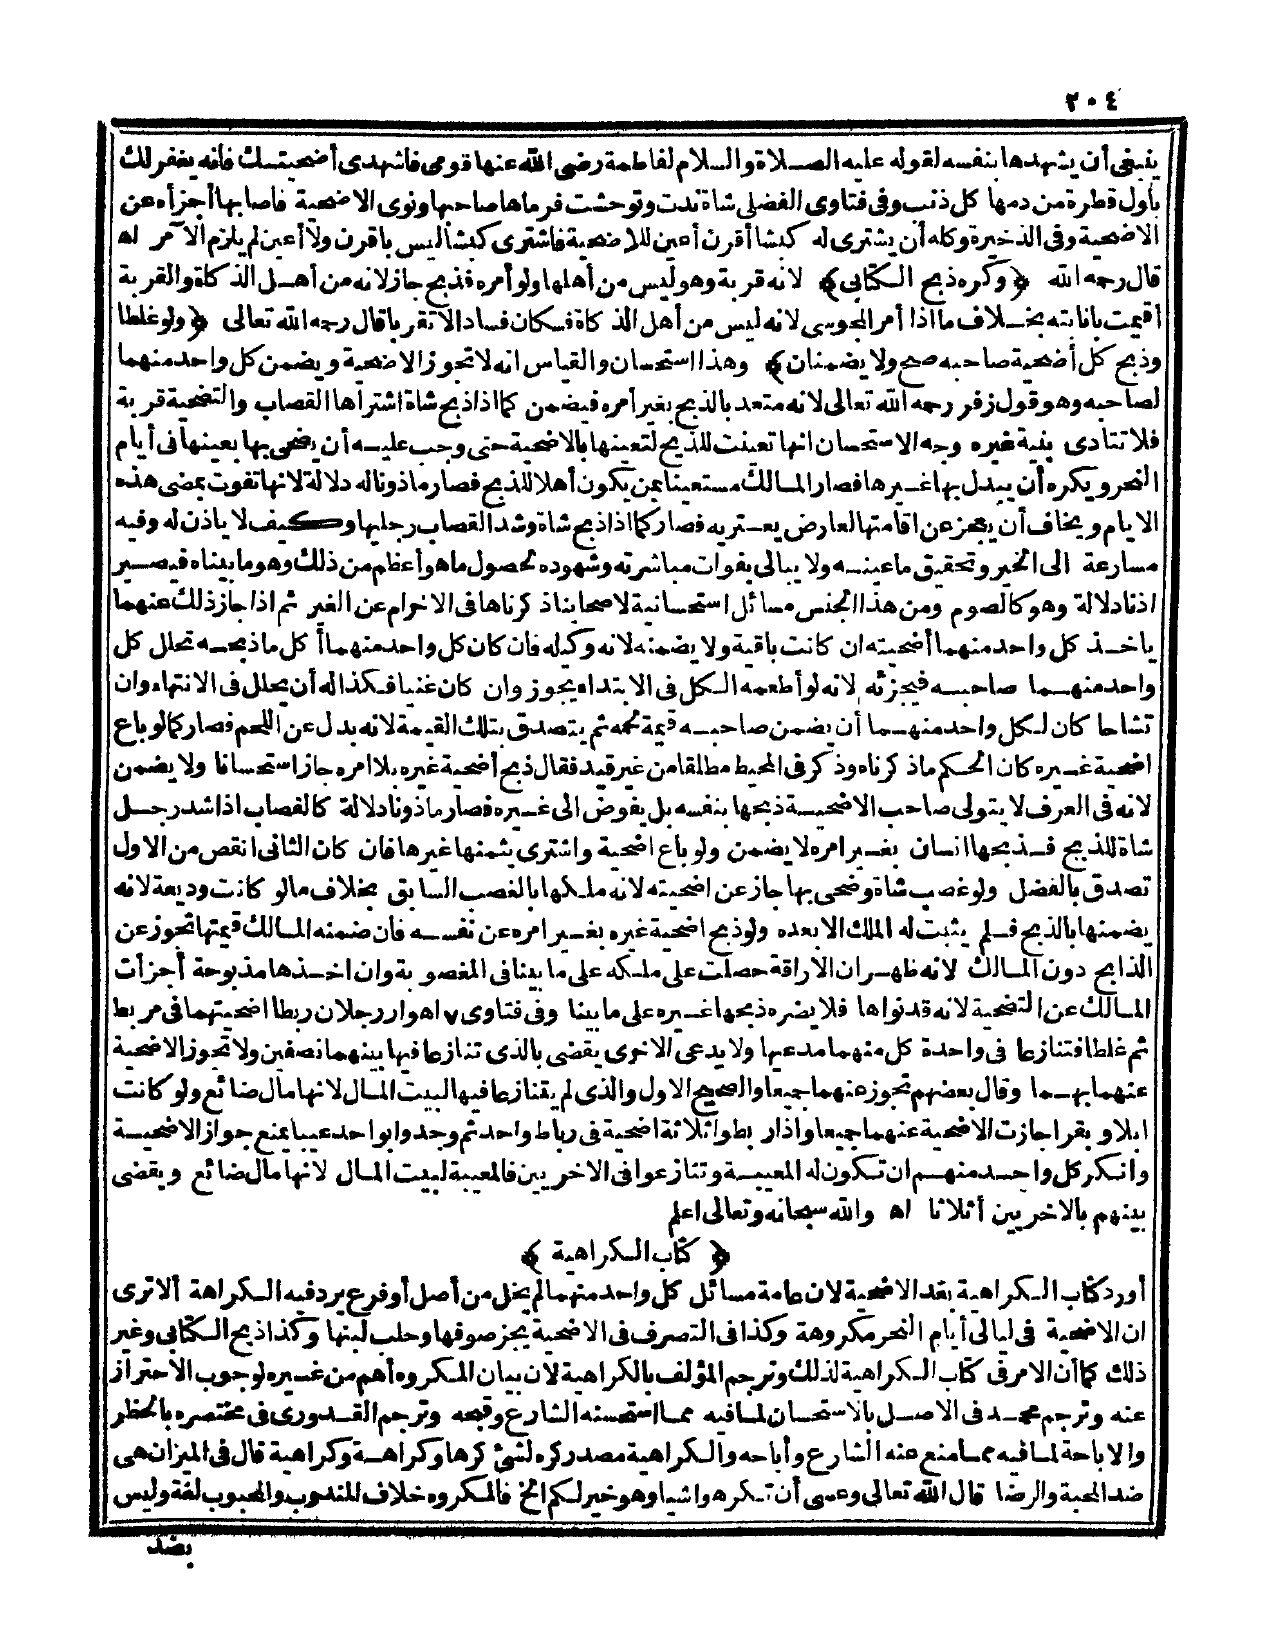 ٢٠٤
ينبغى أن يشهدها بنفسه لقوله عليه الصلاة والسلام لفاطمة رضى الله عنها قومى فاشهدى أضحيتك فانه يغفر لك
بأول قطرة من دمها كل ذنب وفى فتاوى الفضلى شاة ندت وتوحشت فرماها صاحبها ونوى الاضحية فاصابها أجزأه عن
الاضحية وفى الذخيرة وكله أن يشترى له كبشا أقرن أعين للاضحية فاشترى كبشا ليس باقرن ولا أعين لم يلزم الآمر اه
قال رحمه الله ﴿وكره ذبح الكتابى﴾ لانه قربة وهو ليس من أهلها ولو أمره فذبح جاز لانه من أهل الذكاة والقربة
أقيمت بانابته بخلاف ما اذا أمر المجوسى لانه ليس من أهل الذكاة فكان فساد الاتقر با قال رحمه الله تعالى ﴿ولو غلطا
وذبح كل أضحية صاحبه صح ولا يضمنان﴾ وهذا استحسان والقياس انه لا تجوز الاضحية ويضمن كل واحد منهما
لصاحبه وهو قول زفر رحمه الله تعالى لانه متعد بالذبح بغير أمره فيضمن كما اذا ذبح شاة اشتراها القصاب والتضحية قربة
فلا تتادى بنية غيره وجه الاستحسان انها تعينت للذبح لتعينها بالاضحية حتى وجب عليه أن يضحى بها بعينها فى أيام
النحر ويكره أن يبدل بها غيرها فصار المالك مستعينا بمن يكون أهلا للذبح فصار ماذونا له دلالة لانها تفوت بمضى هذه
الايام ويخاف أن يعجز عن اقامتها لعارض يعتريه فصار كما اذا ذبح شاة وشد القصاب رجليها وكيف لا ياذن له وفيه
مسارعة الى الخير وتحقيق ما عينه ولا يبالى بفوات مباشرته وشهوده لحصول ما هو أعظم من ذلك وهو ما بيناه فيصير
اذنا دلالة وهو كالصوم ومن هذا الجنس مسائل استحسانية لاصحابنا ذكرناها فى الاحرام عن الغير ثم اذا جاز ذلك عنهما
ياخذ كل واحد منهما أضحيته ان كانت باقية ولا يضمنه لانه وكيله فان كان كل واحد منهما أكل ما ذبحه تحلل كل
واحد منهما صاحبه فيجزئه لانه لو أطعمه الكل فى الابتداء يجوز وان كان غنيا فكذا له أن يحلل فى الانتهاء وان
تشاحا كان لكل واحد منهما أن يضمن صاحبه قيمة لحمه ثم يتصدق بتلك القيمة لانه بدل عن اللحم فصار كما لو باع
اضحية غيره كان الحكم ما ذكرناه وذكر فى المحيط مطلقا من غير قيد فقال ذبح أضحية غيره بلا امره جاز استحسانا ولا يضمن
لانه فى العرف لا يتولى صاحب الاضحية ذبحها بنفسه بل يفوض الى غيره فصار ماذونا دلالة كالقصاب اذا شد رجل
شاة للذبح فذبحها انسان بغير امره لا يضمن ولو باع اضحية واشترى بثمنها غيرها فان كان الثانى انقص من الاول
تصدق بالفضل ولو غصب شاة وضحى بها جاز عن اضحيته لانه ملكها بالغصب السابق بخلاف ما لو كانت وديعة لانه
يضمنها بالذبح فلم يثبت له الملك الا بعده ولو ذبح اضحية غيره بغير امره عن نفسه فان ضمنه المالك قيمتها تجوز عن
الذابح دون المالك لانه ظهر ان الاراقة حصلت على ملكه على ما بينا فى المغصوبة وان اخذها مذبوحة أجزأت
المالك عن التضحية لانه قد نواها فلا يضره ذبحها غيره على ما بينا وفى فتاوى ٧ اهوار رجلان ربطا اضحيتهما فى مربط
ثم غلطا فتنازعا فى واحدة كل منهما مدعيها ولا يدعى الاخرى يقضى بالذى تنازعا فيها بينهما نصفين ولا تجوز الاضحية
عنهما بهما وقال بعضهم تجوز عنهما جميعا والصحيح الاول والذى لم يتنازعا فيها لبيت المال لانها مال ضائع ولو كانت
ابلا وبقرا جازت الاضحية عنهما جميعا واذا ربطوا ثلاثة اضحية فى رباط واحد ثم وجدوا بواحد عيبا يمنع جواز الاضحية
وانكر كل واحد منهم ان تكون له المعيبة وتنازعوا فى الاخريين فالمعيبة لبيت المال لانها مال ضائع ويقضى
بينهم بالاخريين أثلاثا اه والله سبحانه وتعالى اعلم
﴿ كتاب الكراهية ﴾
أورد كتاب الكراهية بعد الاضحية لان عامة مسائل كل واحد منهما لم يخل من أصل أو فرع يرد فيه الكراهة ألا ترى
ان الاضحية فى ليالى أيام النحر مكروهة وكذا فى التصرف فى الاضحية بجز صوفها وحلب لبنها وكذا ذبح الكتابى وغير
ذلك كما أن الامر فى كتاب الكراهية لذلك وترجم المؤلف بالكراهية لان بيان المكروه أهم من غيره لوجوب الاحتراز
عنه وترجم محمد فى الاصل بالاستحسان لما فيه مما استحسنه الشارع وقبحه وترجم القدورى فى مختصره بالحظر
والاباحة لما فيه مما منع عنه الشارع وأباحه والكراهية مصدر كره الشئ كرها وكراهة وكراهية قال فى الميزان هى
ضد المحبة والرضا قال الله تعالى وعسى أن تكرهوا شيا وهو خير لكم الخ فالمكروه خلاف المندوب والمحبوب لغة وليس
بضد